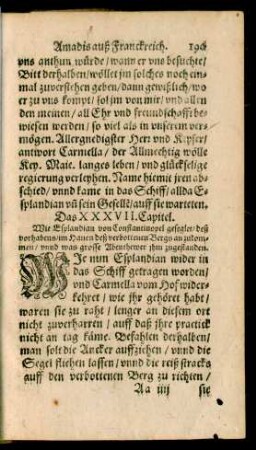 Amadis auß Franckreich. 190
vns anthun würde/ wann er vns besuchte/
Bitt derhalben/ wöllet jm solches noch ein-
mal zuverstehen geben/ dann gewißlich/ wo
er zu vns kompt/ sol jm von mir/ vnd allen
den meinen/ all Ehr vnd freundschafft be-
wiesen werden/ so viel als in vnserem ver-
mögen. Allergnedigster Herr vnd Keyser/
antwort Carmella/ der Allmechtig wölle
Key. Maie. langes leben/ vnd glückselige
regierung verleyhen. Name hiemit jren ab-
schied/ vnnd kame in das Schiff/ allda E-
splandian vñ sein Gesellē/ auff sie warteten.
Das XXXVII. Capitel.
Wie Esplandian von Constantinopel gesegler/ deß
vorhabens/ im Hauen deß verbottenen Bergs an zukom-
men/ vnnd was grosse Abentewer jhn zugestanden.
WIe nun Esplandian wider in
das Schiff getragen worden/
vnd Carmella vom Hof wider-
kehret/ wie jhr gehöret habt/
waren sie zu raht/ lenger an diesem ort
nicht zuverharren/ auff daß jhre practick
nicht an tag käme. Befahlen derhalben/
man solt die Ancker auffziehen/ vnnd die
Segel fliehen lassen/ vnnd die reiß stracks
auff den verbottenen Berg zu richten/
Aa iiij sie